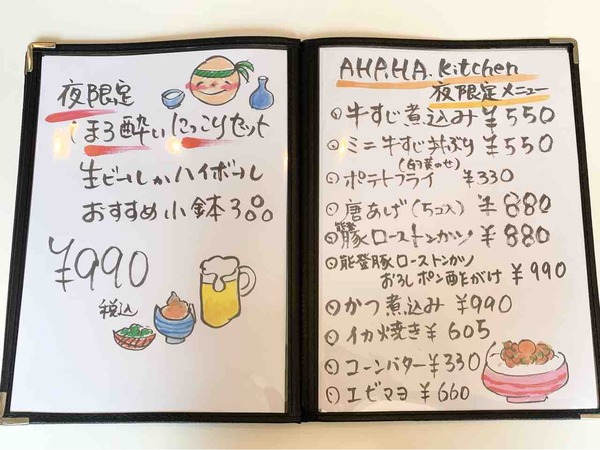 夜限定
ほろ酔いにっこりセット
生ビールかハイボール
おすすめ小鉢3品
¥990
税込
AHAHA.Kitchen
夜限定メニュー
牛すじ煮込み ¥550
ミニ牛すじ丼ぶり ¥550
ポテトフライ ¥330
唐あげ(5コ入) ¥880
豚ローストンカツ ¥880
能登豚ローストンカツ
おろしポン酢がけ ¥990
かつ煮込み ¥990
イカ焼き ¥605
コーンバター ¥330
エビマヨ ¥660